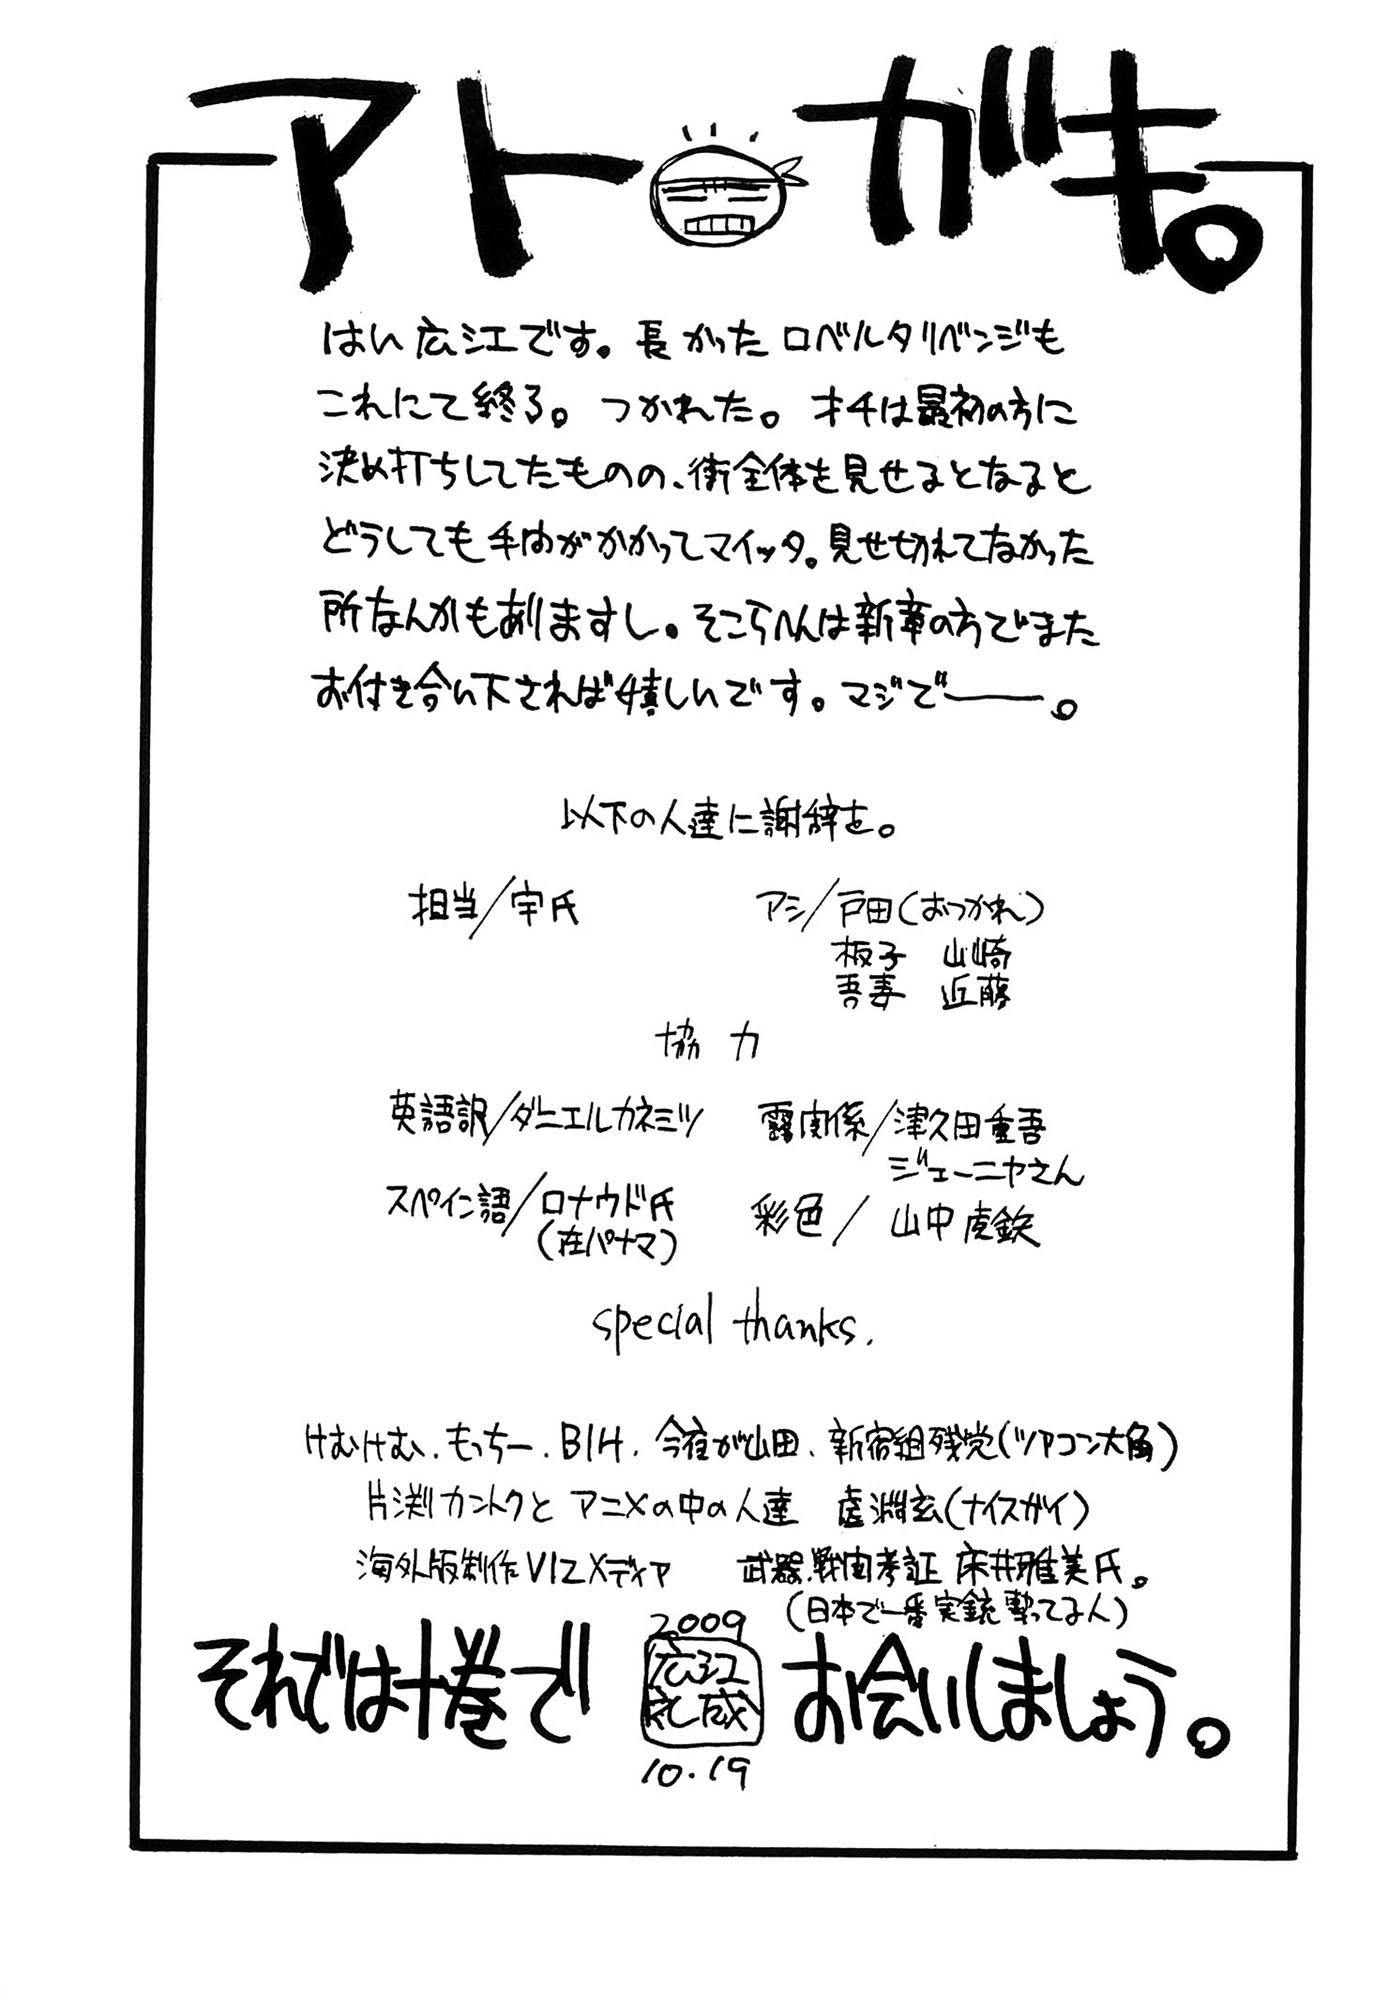 アトがキ。
はい広江です。長かったロベルタリベンジも
これにて終了。つかれた。オチは最初の方に
決め打ちしてたものの、街全体を見せるとなると
どうしても手間がかかってマイッタ。見せ切れてなかった
所なんかもありますし。そこらへんは新章の方でまた
お付き合い下されば嬉しいです。マジでーー。
以下の人達に謝辞を。
担当/宇氏
アシ/戸田(おつかれ)
板子 山崎
吾妻 近藤
協力
英語訳/ダニエルカネミツ
露関係/津久田重吾
ジェーニャさん
スペイン語/ロナウド氏
(在パナマ)
彩色/山中虎鉄
special thanks.
けむけむ、もっちー、B1H、今夜が山田、新宿組残党(ツァコン大角)
片渕カントクと アニメの中の人達 虚淵玄(ナイスガイ)
海外版制作VIZメディア 武器、戦術考証 床井雅美氏。
(日本で一番実銃撃ってる人)
それでは十巻で お会いしましょう。
2009
広江礼威
10.19